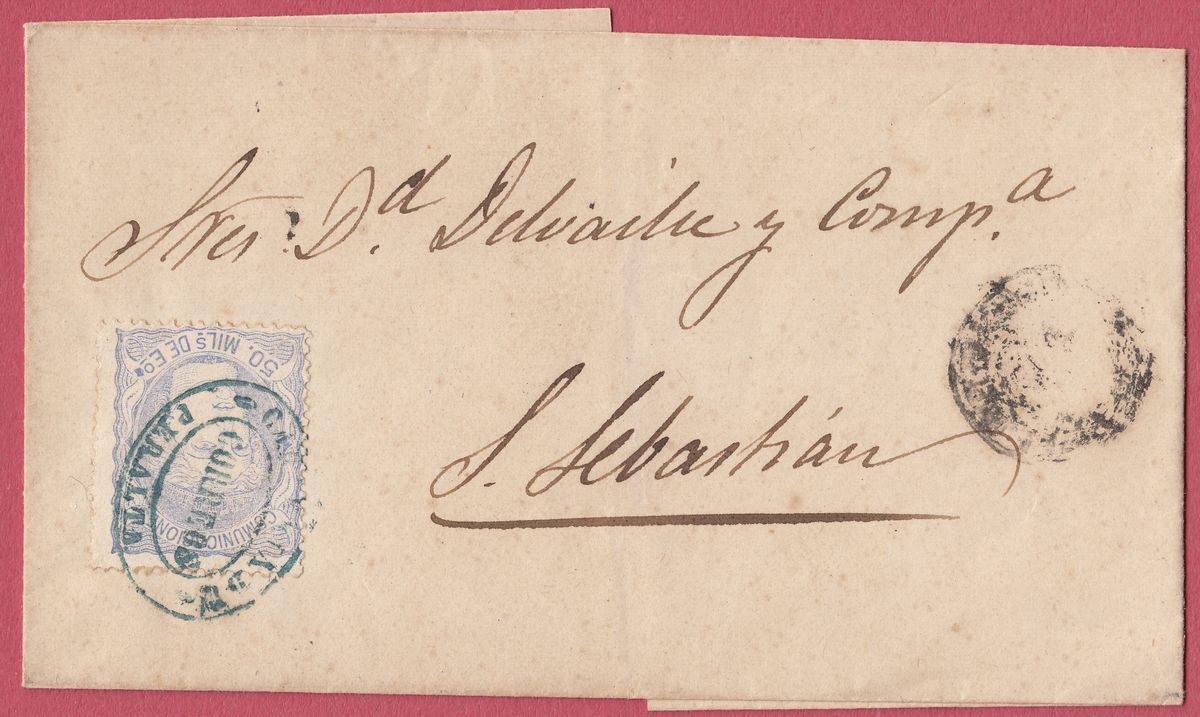 Sres D.d Delvaille y Comp.a
S. Sebastián
50. MILS DE Eo.
COMUNICACIONES
CORREOS
PERALTA